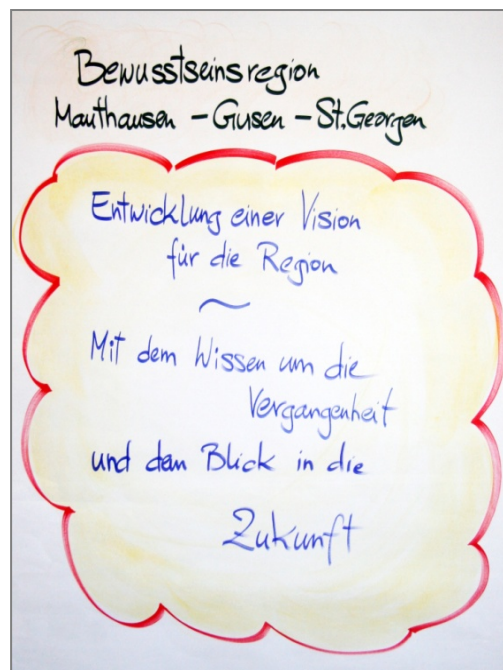 Bewusstseinsregion
Mauthausen - Gusen - St. Georgen
Entwicklung einer Vision
für die Region
~
Mit dem Wissen um die
Vergangenheit
und dem Blick in die
Zukunft